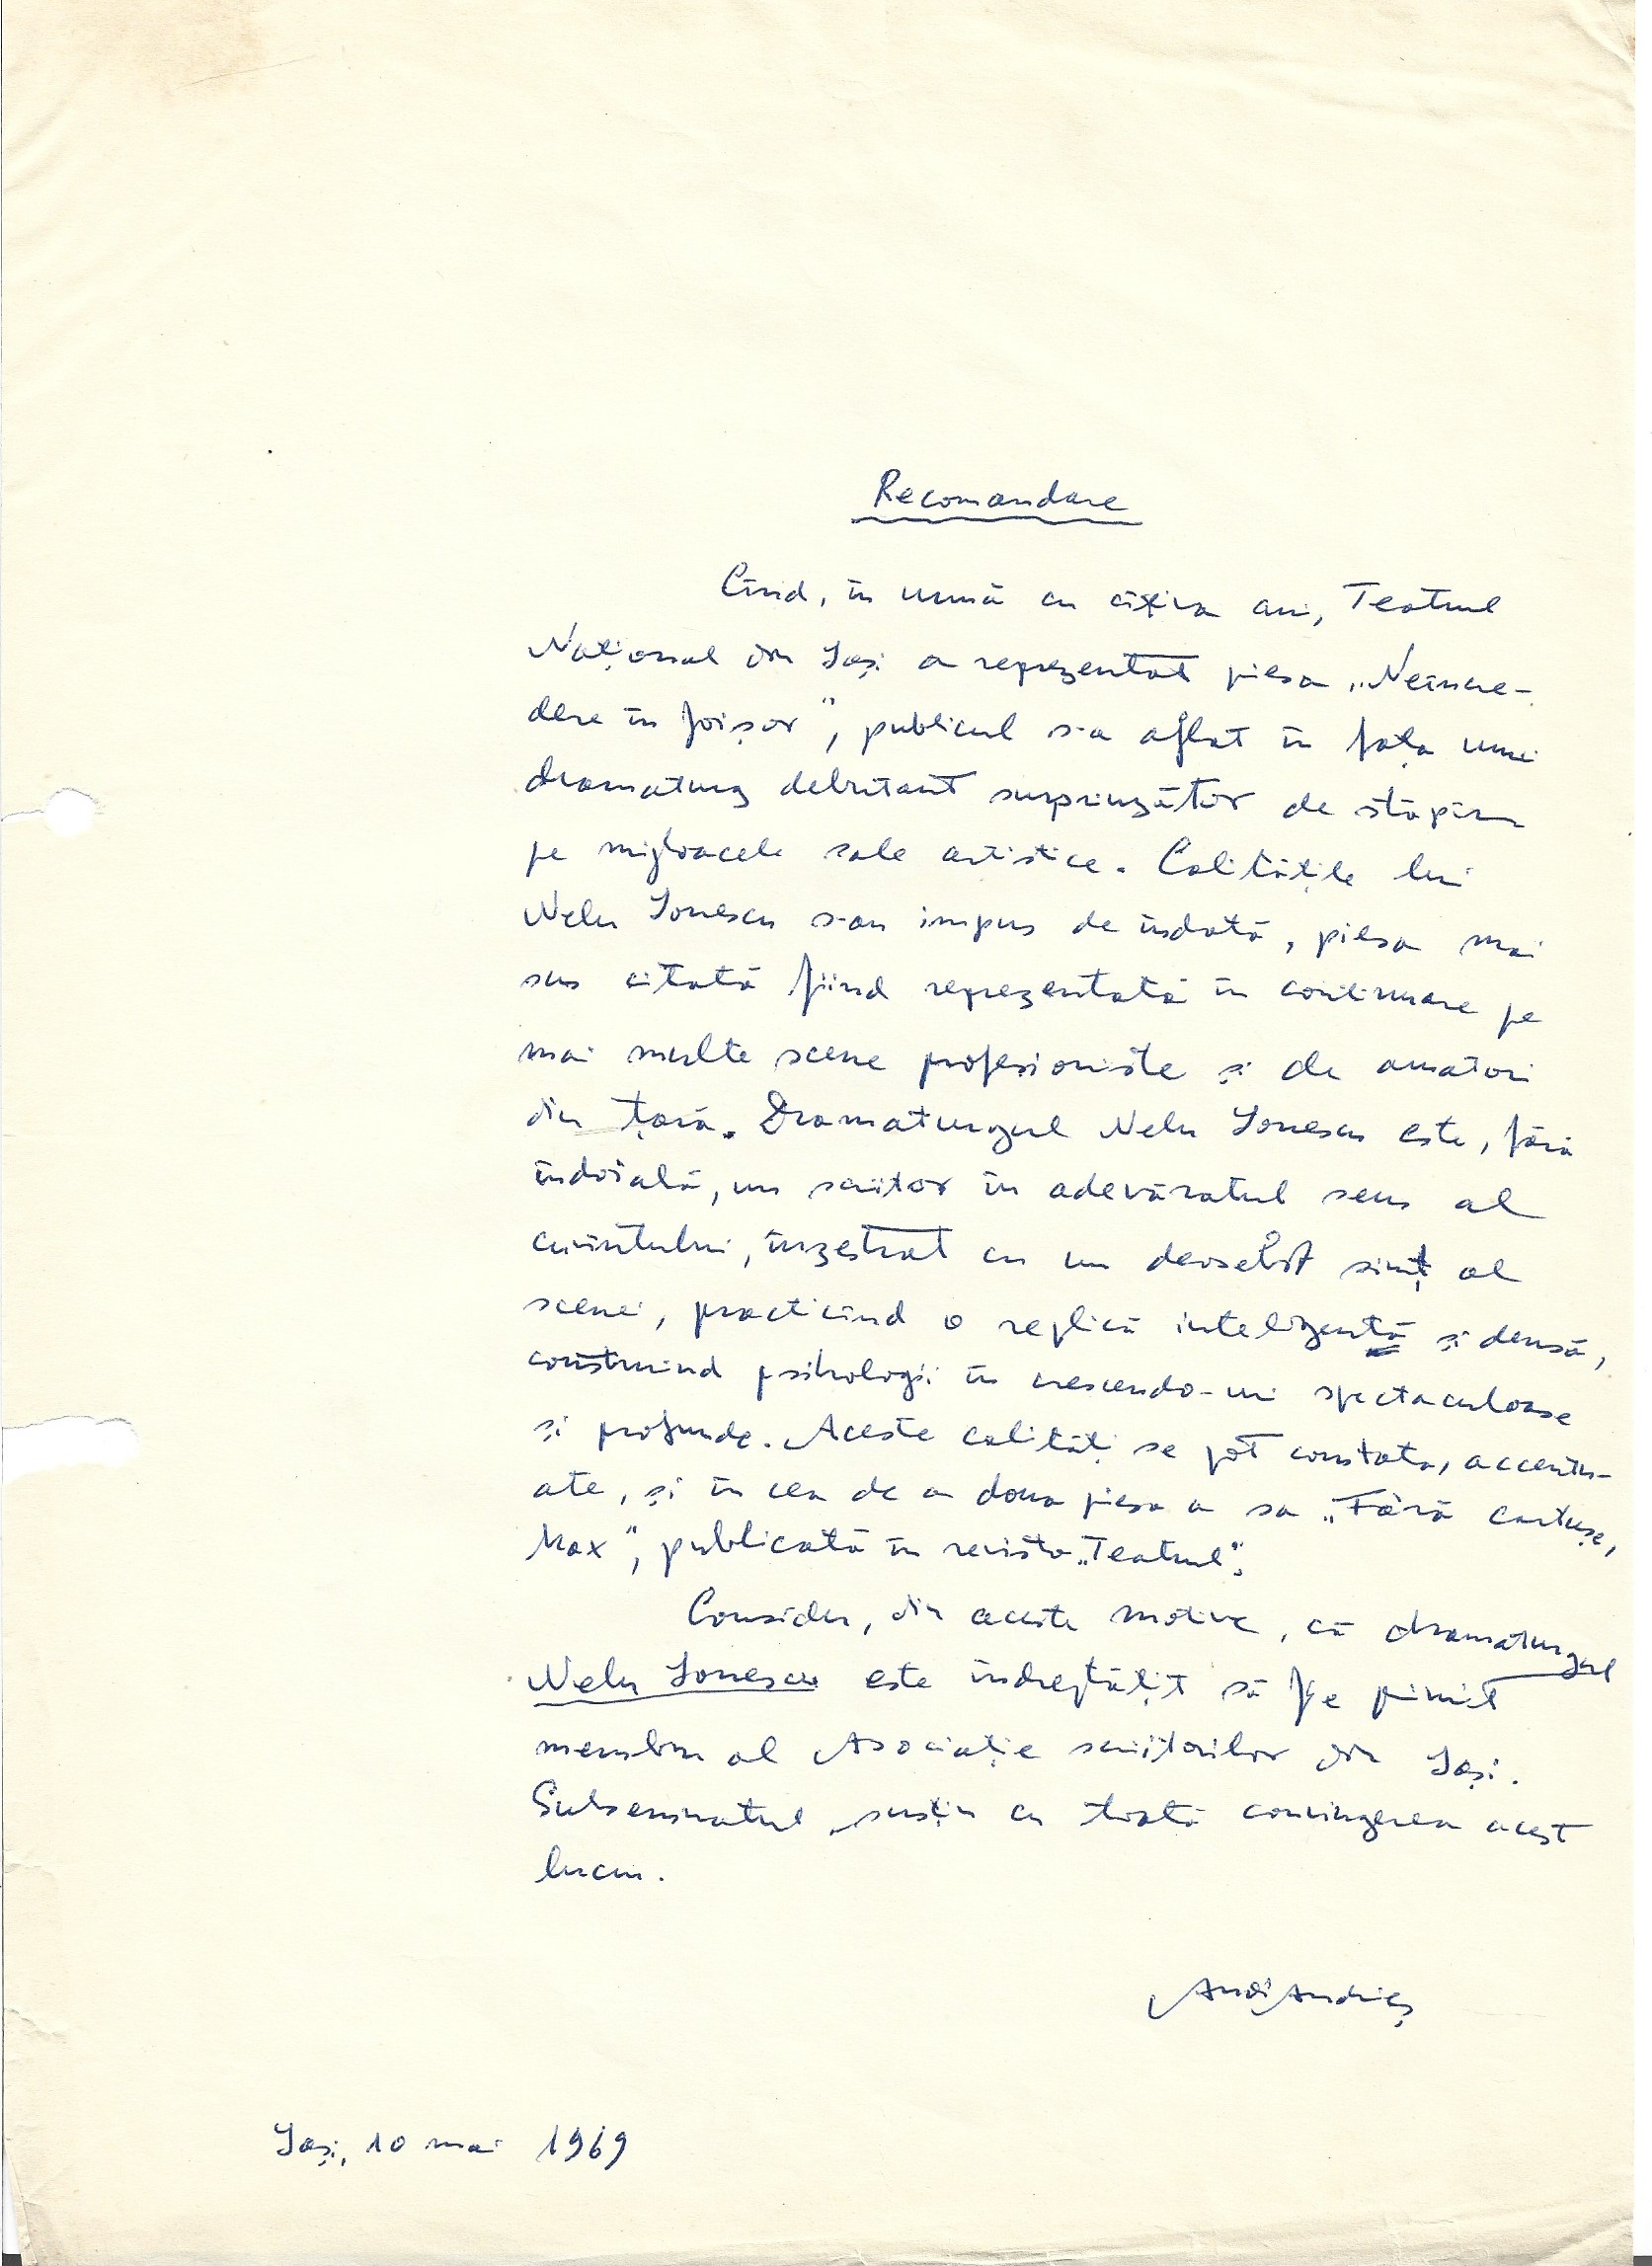 Recomandare
Cînd, în urmă cu cîțiva ani, Teatrul
Național din Iași a reprezentat piesa „Neîncre-
dere în foișor", publicul s-a aflat în fața unui
dramaturg debutant surprinzător de stăpîn
pe mijloacele sale artistice. Calitățile lui
Nelu Ionescu s-au impus de îndată, piesa mai
sus citată fiind reprezentată în continuare pe
mai multe scene profesioniste și de amatori
din țară. Dramaturgul Nelu Ionescu este, fără
îndoială, un scriitor în adevăratul sens al
cuvîntului, înzestrat cu un deosebit simț al
scenei, practicînd o replică inteligentă și densă,
construind psihologii în crescendo-uri spectaculoase
și profunde. Aceste calități se pot constata, accentu-
ate, și în cea de a doua piesa a sa „Fără cartușe,
Max", publicată în revista „Teatrul".
Consider, din aceste motive, că dramaturgul
Nelu Ionescu este îndreptățit să fie primit
membru al Asociație scriitorilor din Iași.
Subsemnatul susțin cu toată convingerea acest
lucru.
Andi Andrieș
Iași, 10 mai 1969